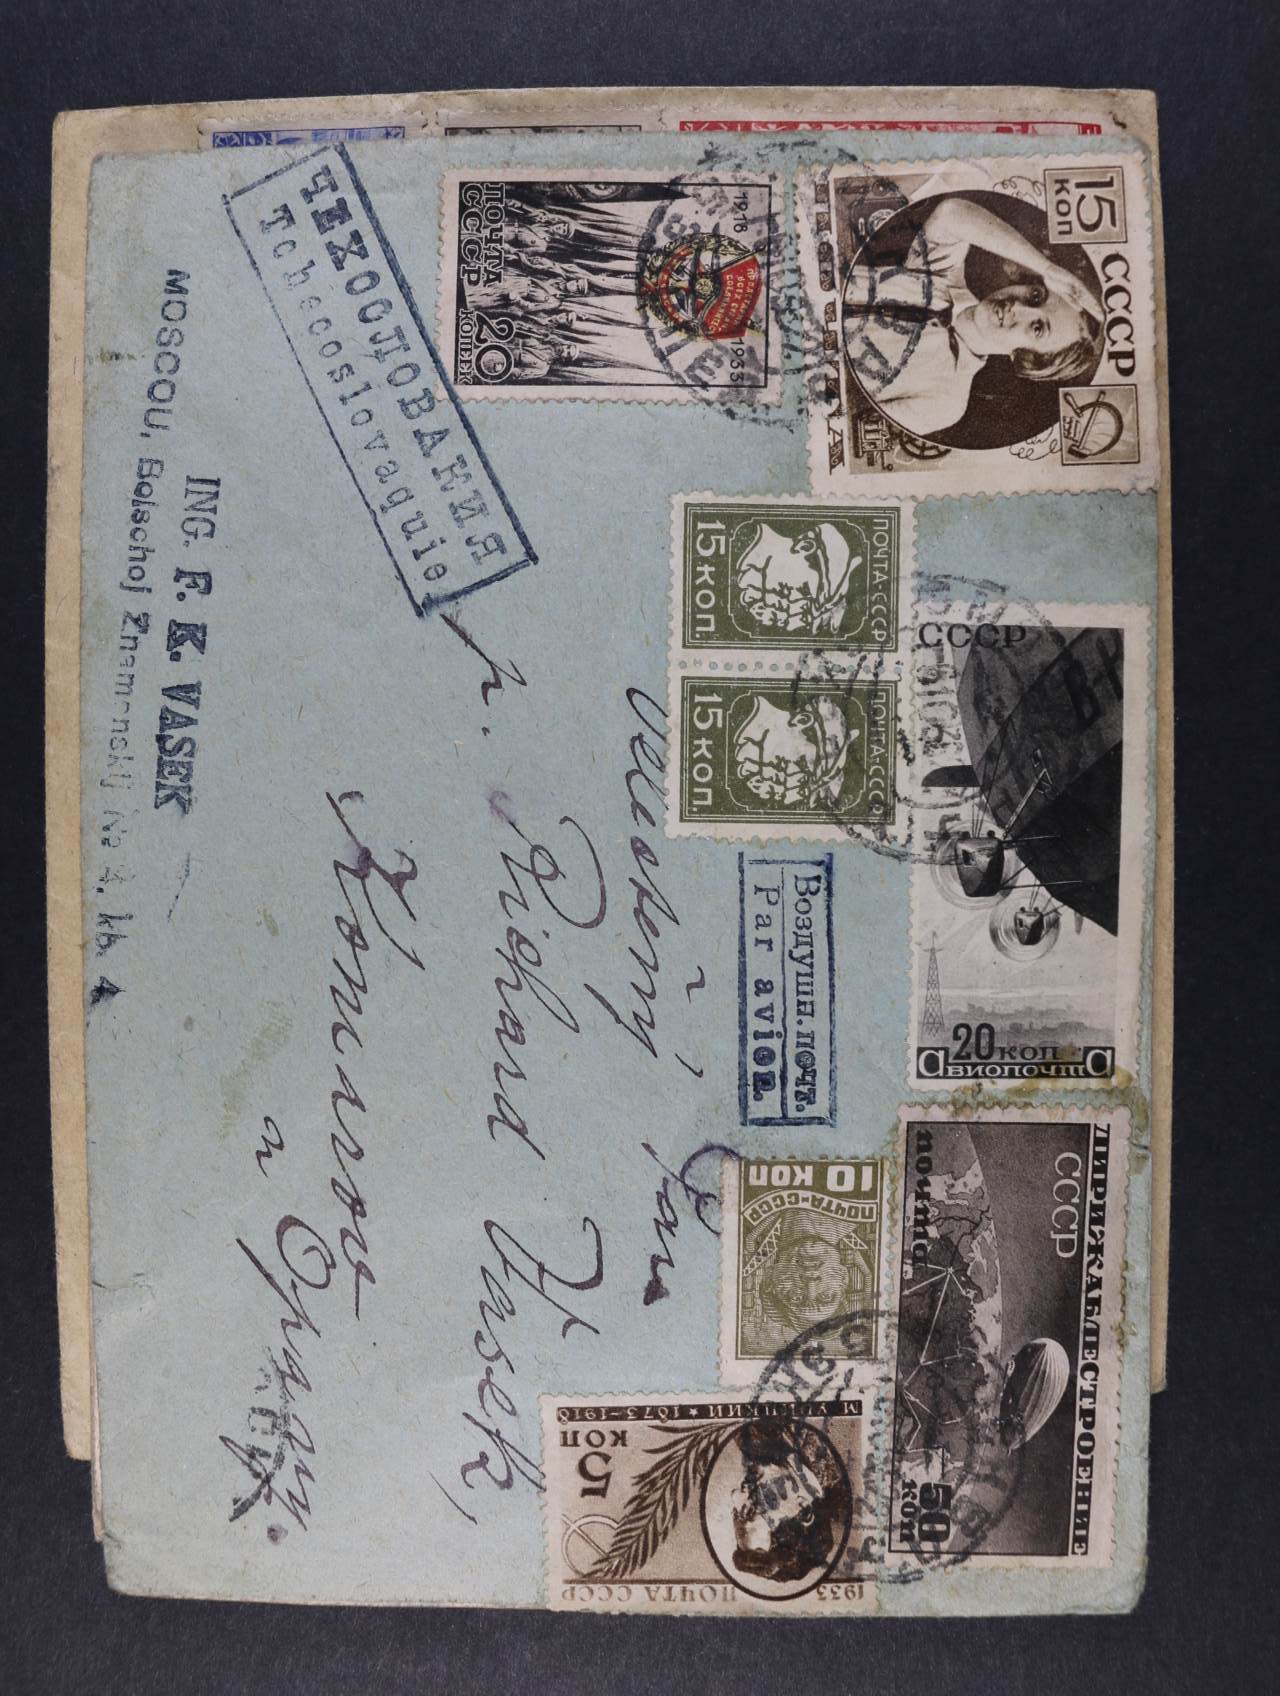 15
КОП
СССР
1918
1933
ПРОЛЕТАРИИ
ВСЕХ СТРАН
СОЕДИНЯЙТЕСЬ
ПОЧТА
СССР
20
КОПЕЕК
ЧЕХОСЛОВАКИЯ
Tchecoslovaquie
СССР
20 КОП
АВИОПОЧТА
ПОЧТА-СССР
15 КОП.
ПОЧТА-СССР
15 КОП.
Воздушн.почт.
Par avion.
ДИРИЖАБЛЕСТРОЕНИЕ
СССР
почта
50
коп
10 КОП
ПОЧТА-СССР
М УРИЦКИЙ ★ 1873-1918
5
КОП
ПОЧТА СССР
1933
Velectěný pan
p. Richard Vašek,
Komarov
u Opavy.
ING. F. K. VASEK
MOSCOU, Bolschoj Znamenskij № 4. kb. 4